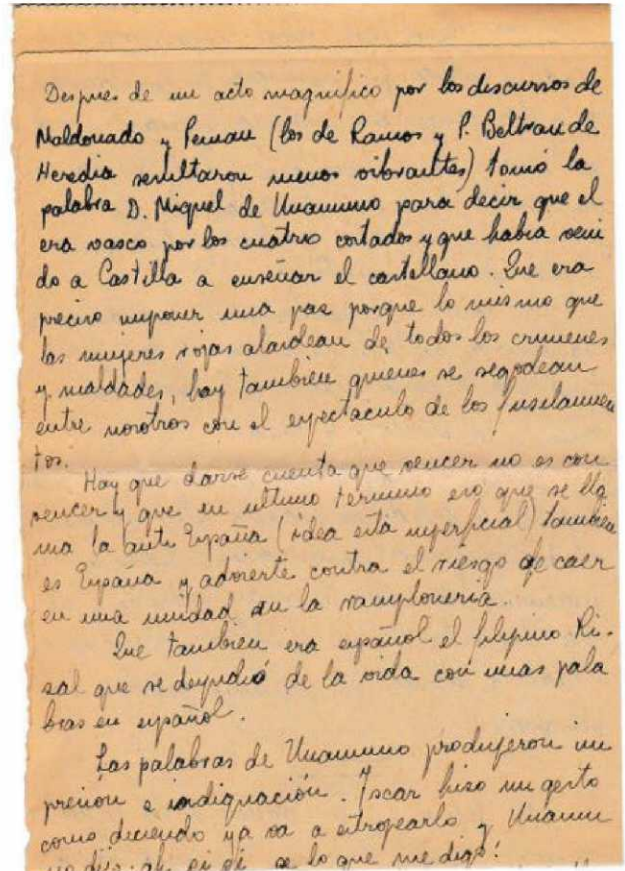 Despues de un acto magnifico por los discursos de
Maldonado y Peman (los de Ramos y P. Beltran de
Heredia resultaron menos vibrantes) tomó la
palabra D. Miguel de Unamuno para decir que el
era vasco por los cuatro costados y que habia veni
do a Castilla a enseñar el castellano. Que era
preciso imponer una paz porque lo mismo que
las mujeres rojas alardean de todos los crimenes
y maldades, hay tambien quienes se regodean
entre nosotros con el espectaculo de los fusilamien
tos.
Hay que darse cuenta que vencer no es con
vencer y que en ultimo termino eso que se lla
ma la anti España (idea esta superficial) tambien
es España y advierte contra el riesgo de caer
en una unidad en la ramploneria.
Que tambien era español el filipino Ri-
sal que se despidió de la vida con unas pala
bras en español.
Las palabras de Unamuno produjeron im
presion e indignación. Iscar hizo un gesto
como deciendo ya va a estropearlo y Unamu
no dijo: ah, si si se lo que me digo!